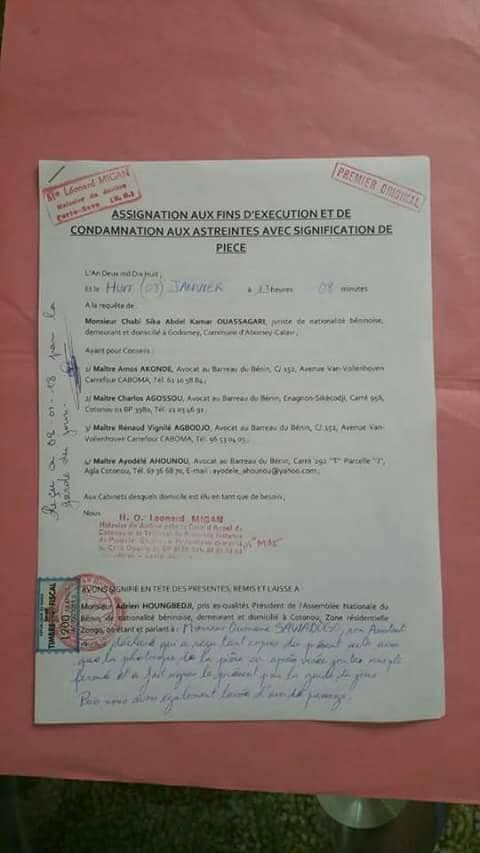 Me Léonard MIGAN
Huissier de Justice
Porto-Novo
PREMIER ORIGINAL
ASSIGNATION AUX FINS D'EXECUTION ET DE
CONDAMNATION AUX ASTREINTES AVEC SIGNIFICATION DE
PIECE
L'An Deux mil Dix Huit ;
Et le HUIT (08) JANVIER à 13 heures 08 minutes
A la requête de :
Monsieur Chabi Sika Abdel Kamar OUASSAGARI, juriste de nationalité béninoise,
demeurant et domicilié à Godomey, Commune d'Abomey-Calavi ;
Ayant pour Conseils :
1/ Maître Amos AKONDE, Avocat au Barreau du Bénin, C/ 152, Avenue Van-Vollenhoven
Carrefour CABOMA, Tél. 62 10 58 84 ;
2/ Maître Charlos AGOSSOU, Avocat au Barreau du Bénin, Enagnon-Sikècodji, Carré 958,
Cotonou 01 BP 3980, Tél. 21 03 46 91 ;
3/ Maître Rénaud Vignilé AGBODJO, Avocat au Barreau du Bénin, C/ 152, Avenue Van-
Vollenhoven Carrefour CABOMA, Tél. 96 53 04 05 ;
4/ Maître Ayodélé AHOUNOU, Avocat au Barreau du Bénin, Carré 292 "T" Parcelle "J",
Agla Cotonou, Tél. 67 36 68 70, E-mail : ayodele_ahounou@yahoo.com ;
Aux Cabinets desquels domicile est élu en tant que de besoins ;
Nous
H. O. Léonard MIGAN
Huissier de Justice près la Cour d'Appel de
Cotonou et le Tribunal de Première Instance
de
AVONS SIGNIFIE EN TETE DES PRESENTES, REMIS ET LAISSE A :
Monsieur Adrien HOUNGBEDJI, pris ès-qualités Président de l'Assemblée Nationale du
Bénin, de nationalité béninoise, demeurant et domicilié à Cotonou, Zone résidentielle
Zongo, où étant et parlant à : Monsieur Ousmane SAWADOGO, son Assistant
déclaré qui a reçu tant copie du présent acte ainsi
que la photocopie de la pièce
fermé et a fait signer le présent par la garde du jour
Pour nous avons également laissé d'avis de passage.
Reçu ce 08-01-18 par la
garde du jour.
TIMBRE FISCAL
1200